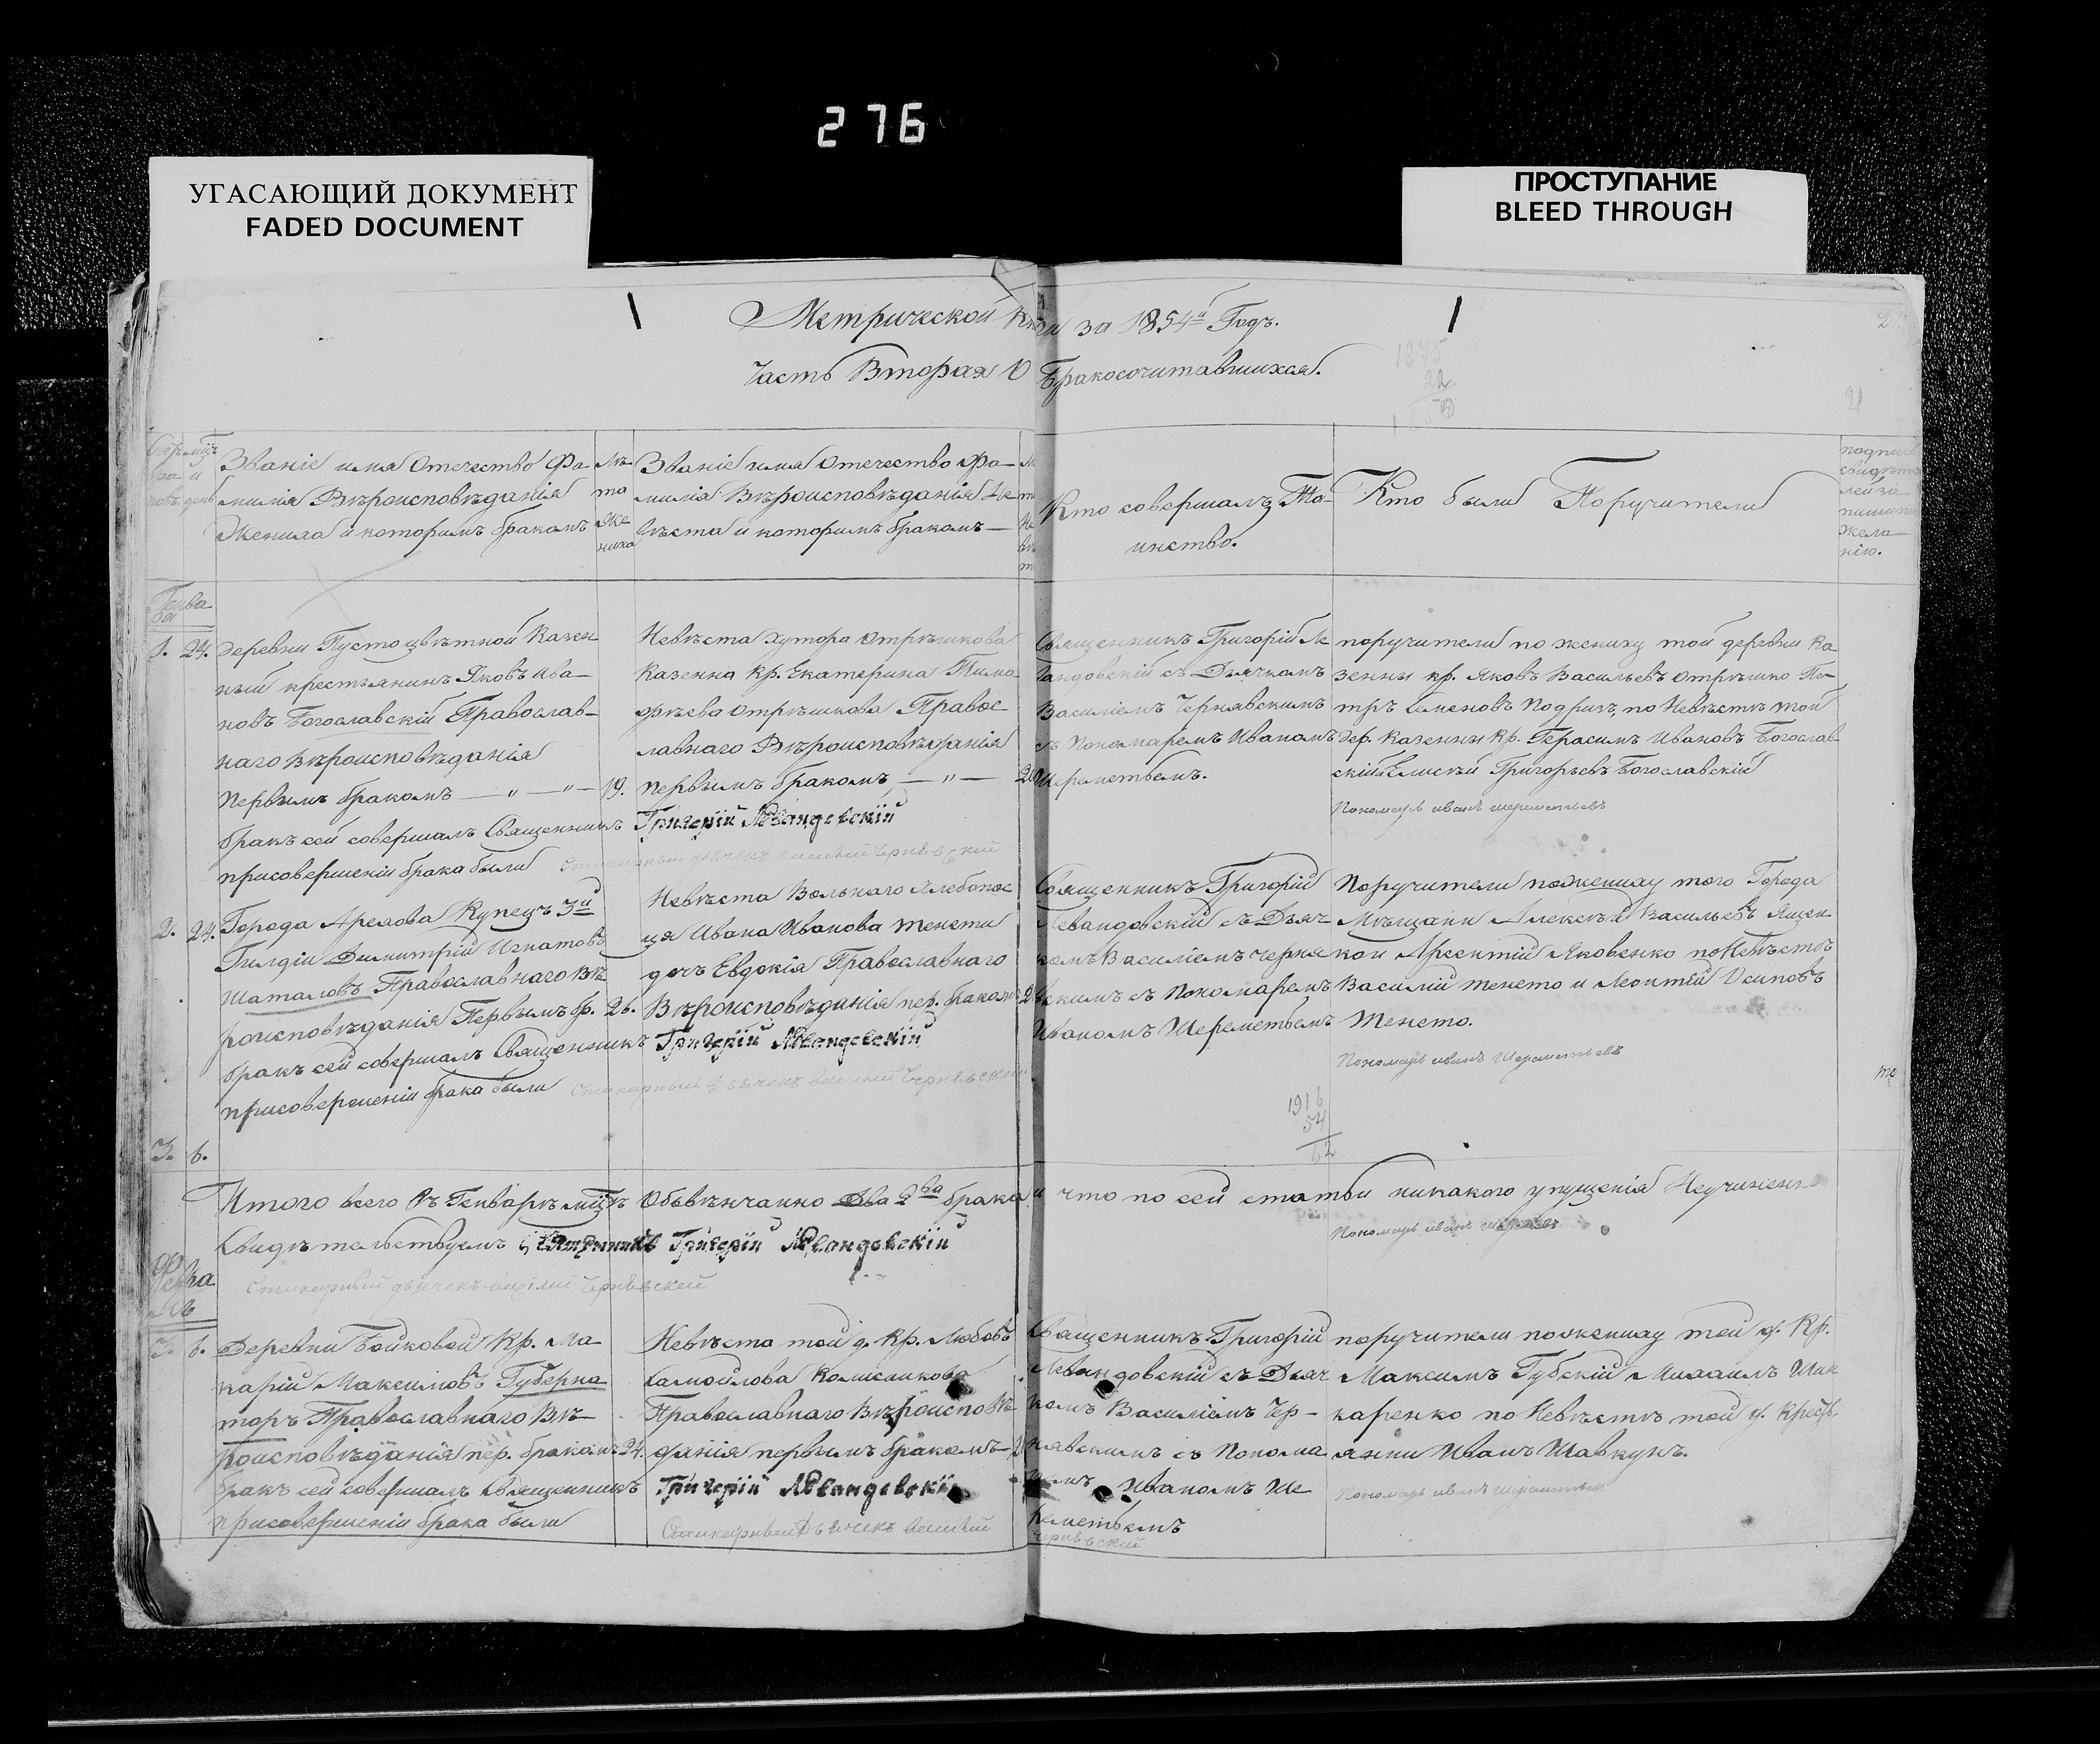 276
УГАСАЮЩИЙ ДОКУМЕНТ
FADED DOCUMENT
ПРОСТУПАНИЕ
BLEED THROUGH
Метрической книги за 1854й Годъ.
Часть Вторая О Бракосочитавшихся.
Званіе имя Отечество Фа-
милія Вѣроисповѣданія
Жениха и которимъ бракомъ
Лѣ-
та
Же
ниха
Званіе имя Отечество Фа-
милія Вѣроисповѣданія Не
вѣста и которимъ бракомъ
Кто совершалъ Та-
инство.
Кто были Поручители
подпись
свидѣте
лей за
пиши по
жела
нію.
Генва
ря
1. 24.
Деревни Пустоцвѣтной Казен
ный крестьянинъ Яковъ Ива-
новъ Богославскій Православ-
наго Вѣроисповѣданія
Первымъ бракомъ — " — " — 19.
бракъ сей совершалъ Священникъ
присовершеніи брака были
Невѣста Хутора Отрѣшкова
Казенна Кр. Екатерина Тимо
фѣева Отрѣшкова Правос
лавнаго Вѣроисповѣданія
первымъ бракомъ — " — 20
Григорій Левандовскій
Стихарный дьячекъ Василій Чернявскій
Священникъ Григорій Ле
вандовскій съ Дьячкомъ
Василіемъ Чернявскимъ
съ Пономаремъ Иваномъ
Шереметьемъ.
поручители по жениху той деревни Ка
зенны кр. Яковъ Васильевъ Отрѣшко Пе-
тръ Семеновъ Подризъ, по Невѣстѣ той
дер. Казенны Кр. Герасимъ Ивановъ Богослав-
скій Елисѣй Григорьевъ Богославскій
Пономарь иванъ шереметьевъ
2. 24.
Города Орехова Купецъ 3й
Гилдіи Димитрій Игнатовъ
Шаталовъ Православнаго Вѣ
роисповѣданія Первымъ бр. 26.
бракъ сей совершалъ Священникъ
присовершеніи брака были
Невѣста Вольнаго Хлебопас
ця Ивана Иванова Тенети
дочъ Евдокія Православнаго
Вѣроисповѣданія пер. бракомъ
Григорій Левандовскій
Стихарный Дьячекъ Василій Чернявскій
Священникъ Григорій
Левандовскій съ Дьяч
комъ Василіемъ Черня
вскимъ съ Пономаремъ
Иваномъ Шереметьемъ
Поручители по жениху того Города
Мѣщани Алексѣй Васильевъ Ящен
кои Арсентій Яковенко по Невѣстѣ
Василій Тенето и Леонтій Осиповъ
Тенето.
Пономарь иванъ Шереметьевъ
1916
54
62
3. 6.
Итого всего Въ Генварѣ мцѣ Объвѣнчанно Два 2ва брака и что по сей статьи никакого упущенія Неучинено
Свидѣтельствуемъ Священникъ Григорій Левандовскій
Пономарь иванъ шереметьевъ
Стихарный дьячекъ василій Чернявскій
Февра
ль
3. 6.
Деревни Бойковой Кр. Ма
карій Максимовъ Губерна
торъ Православнаго Вѣ-
роисповѣданія пер. бракомъ 24.
бракъ сей совершалъ Священникъ
присовершеніи брака были
Невѣста той д. Кр. Любовъ
Самойлова
Православнаго Вѣроисповѣ
данія первымъ бракомъ
Григорій Левандовскій
Стихарный Дьячекъ Василій
Чернявскій
Священникъ Григорій
Левандовскій съ Дьяч
комъ Василіемъ Чер-
нявскимъ съ Понома
Иваномъ Ше
реметьемъ
поручители по жениху той д. Кр.
Максимъ Губскій Михаилъ Шин
каренко по Невѣстѣ той д. Кресть
янни Иванъ Шавкунъ.
Пономарь иванъ шереметьев